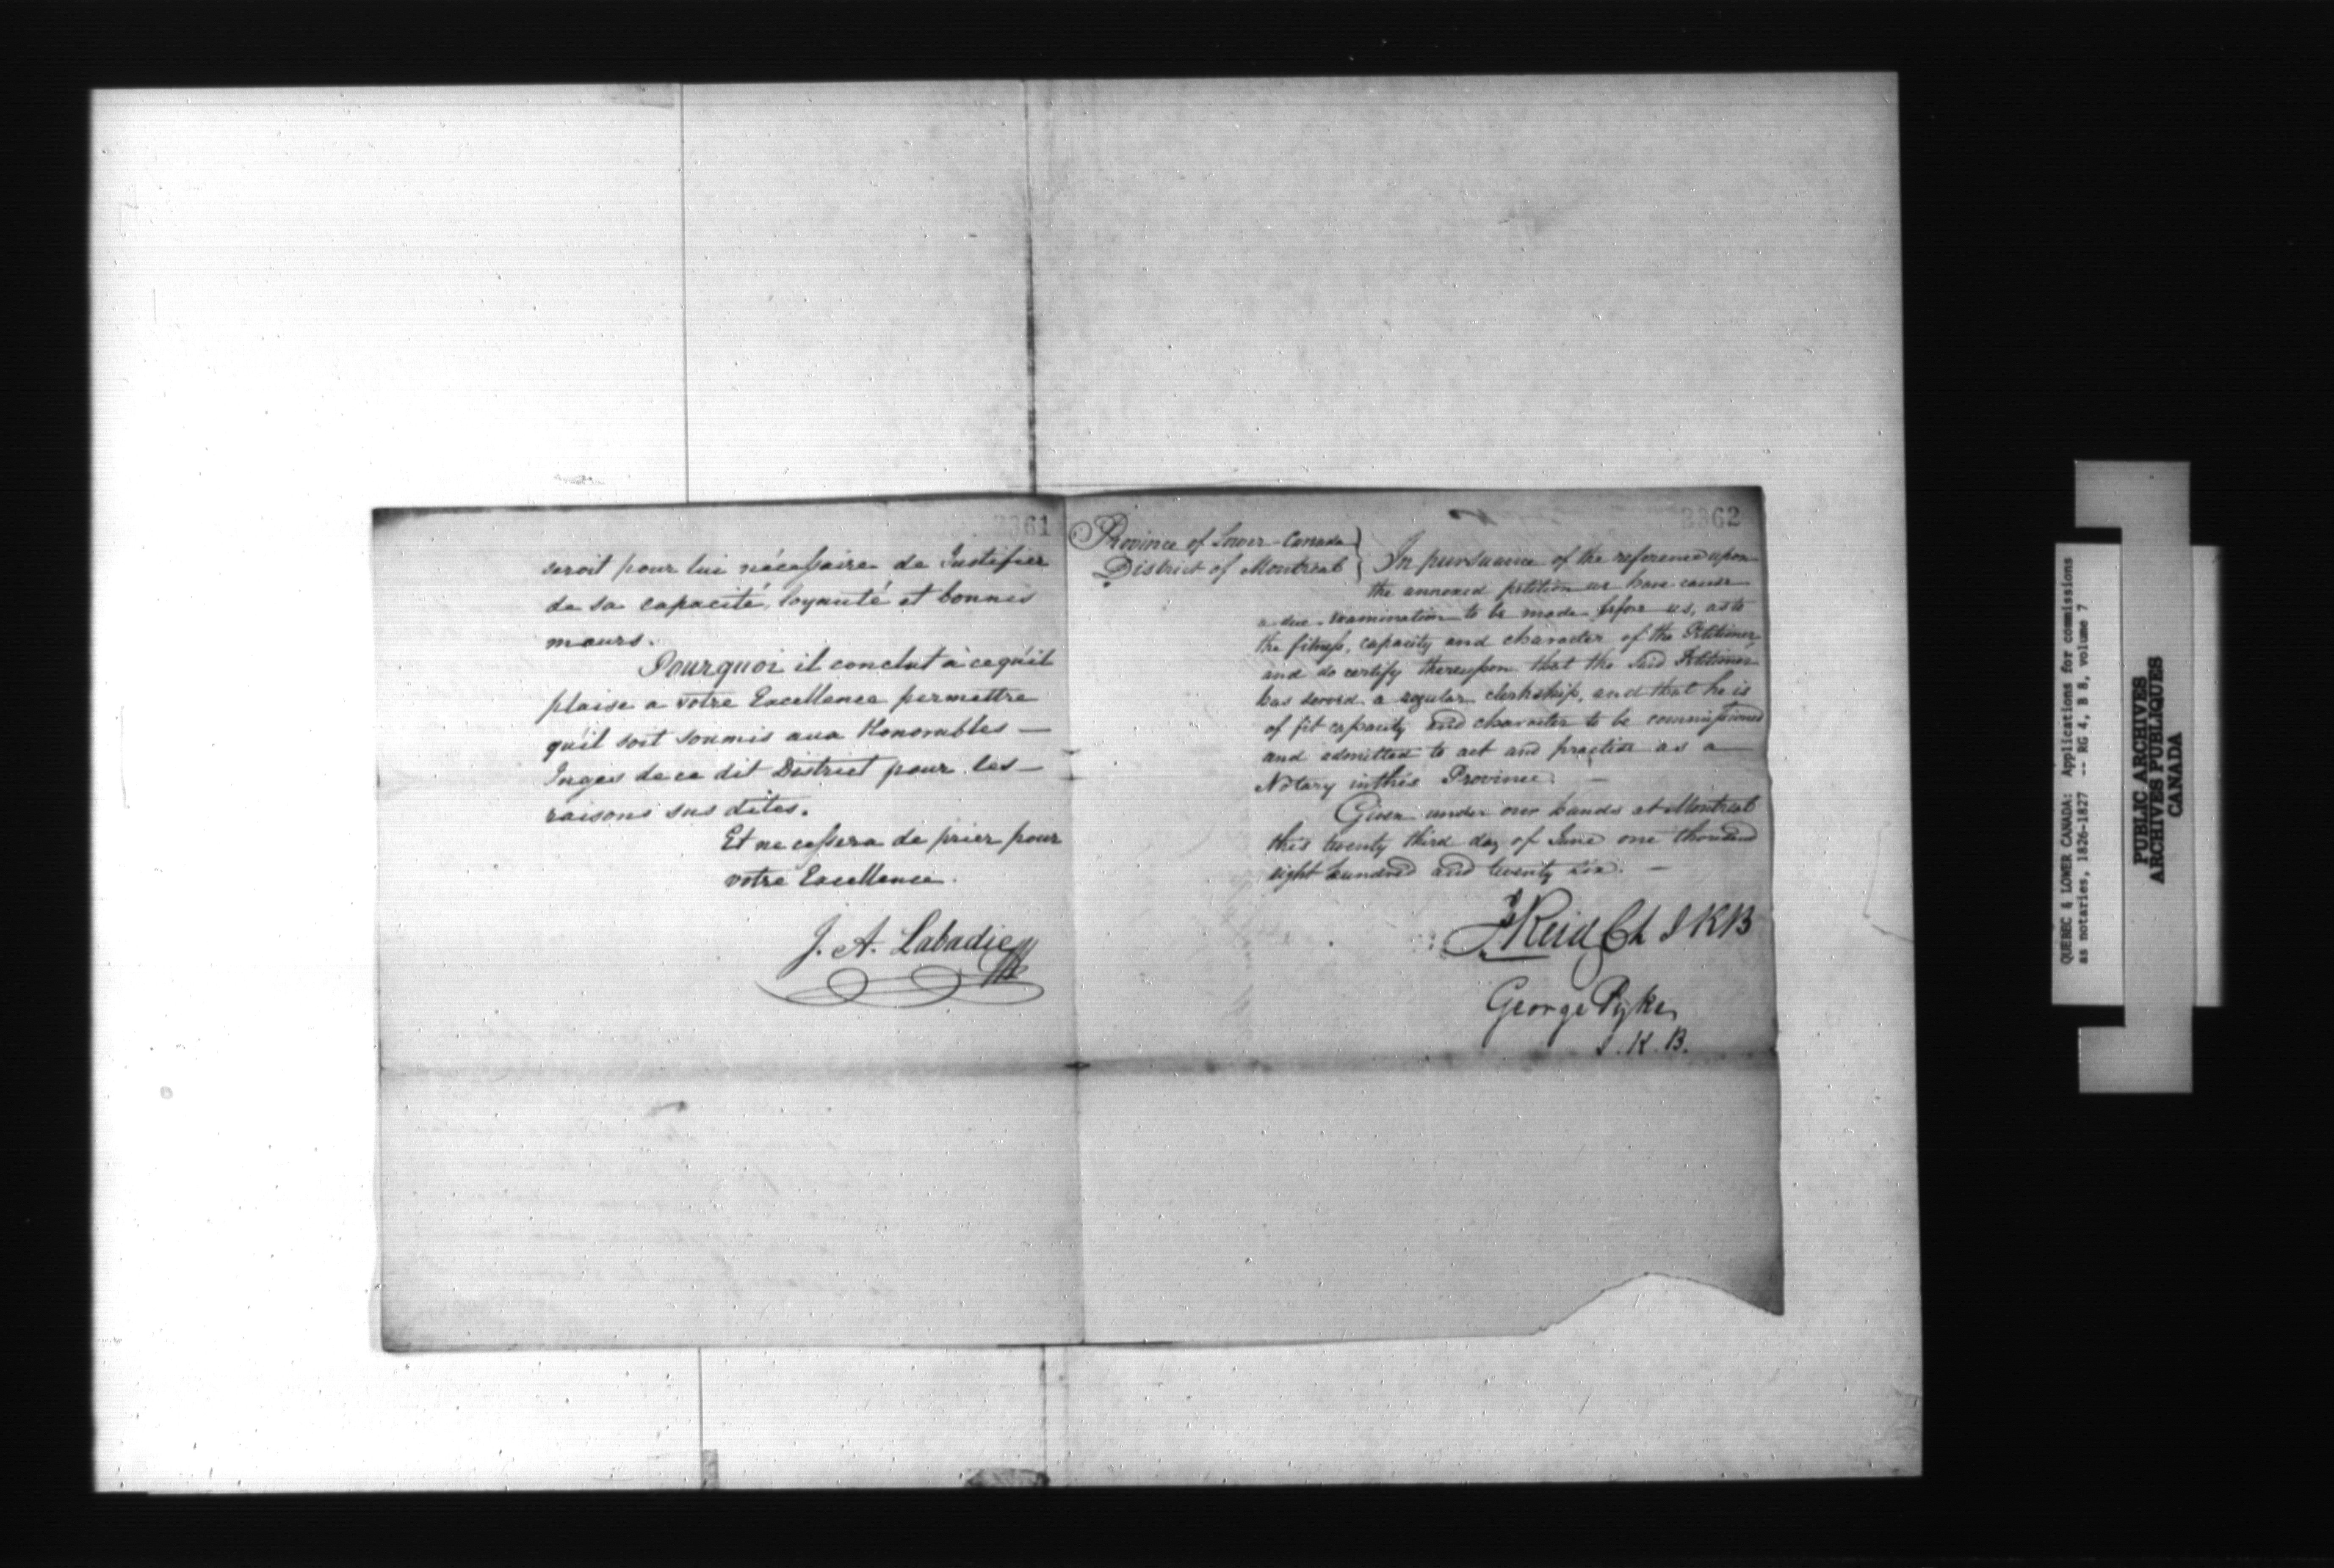 2361
seroit pour lui nécessaire de Justifier
de sa capacité, loyauté et bonnes
mœurs.
Pourquoi il conclut à cequ'il
plaise a votre Excellence permettre
qu'il soit soumis aux Honorables —
Juges de ce dit District pour les —
raisons sus dites.
Et ne cessera de prier pour
votre Excellence.
J. A. Labadie
2362
Province of Lower-Canada
District of Montreal
In pursuance of the reference upon
the annexed petition we have cause
a due examination to be made before us, as to
the fitness, capacity and character of the Petitioner,
and do certify thereupon that the said Petitioner
has served a regular clerkship, and that he is
of fit capacity and character to be commissioned
and admitted to act and practise as a —
Notary in this Province. —
Given under our hands at Montreal
this twenty third day of June one thousand
eight hundred and twenty six. —
J Reid Ch J KB
George Pyke,
J. K. B.
QUEBEC & LOWER CANADA: Applications for commissions
as notaries, 1826-1827 -- RG 4, B 8, volume 7
PUBLIC ARCHIVES
ARCHIVES PUBLIQUES
CANADA